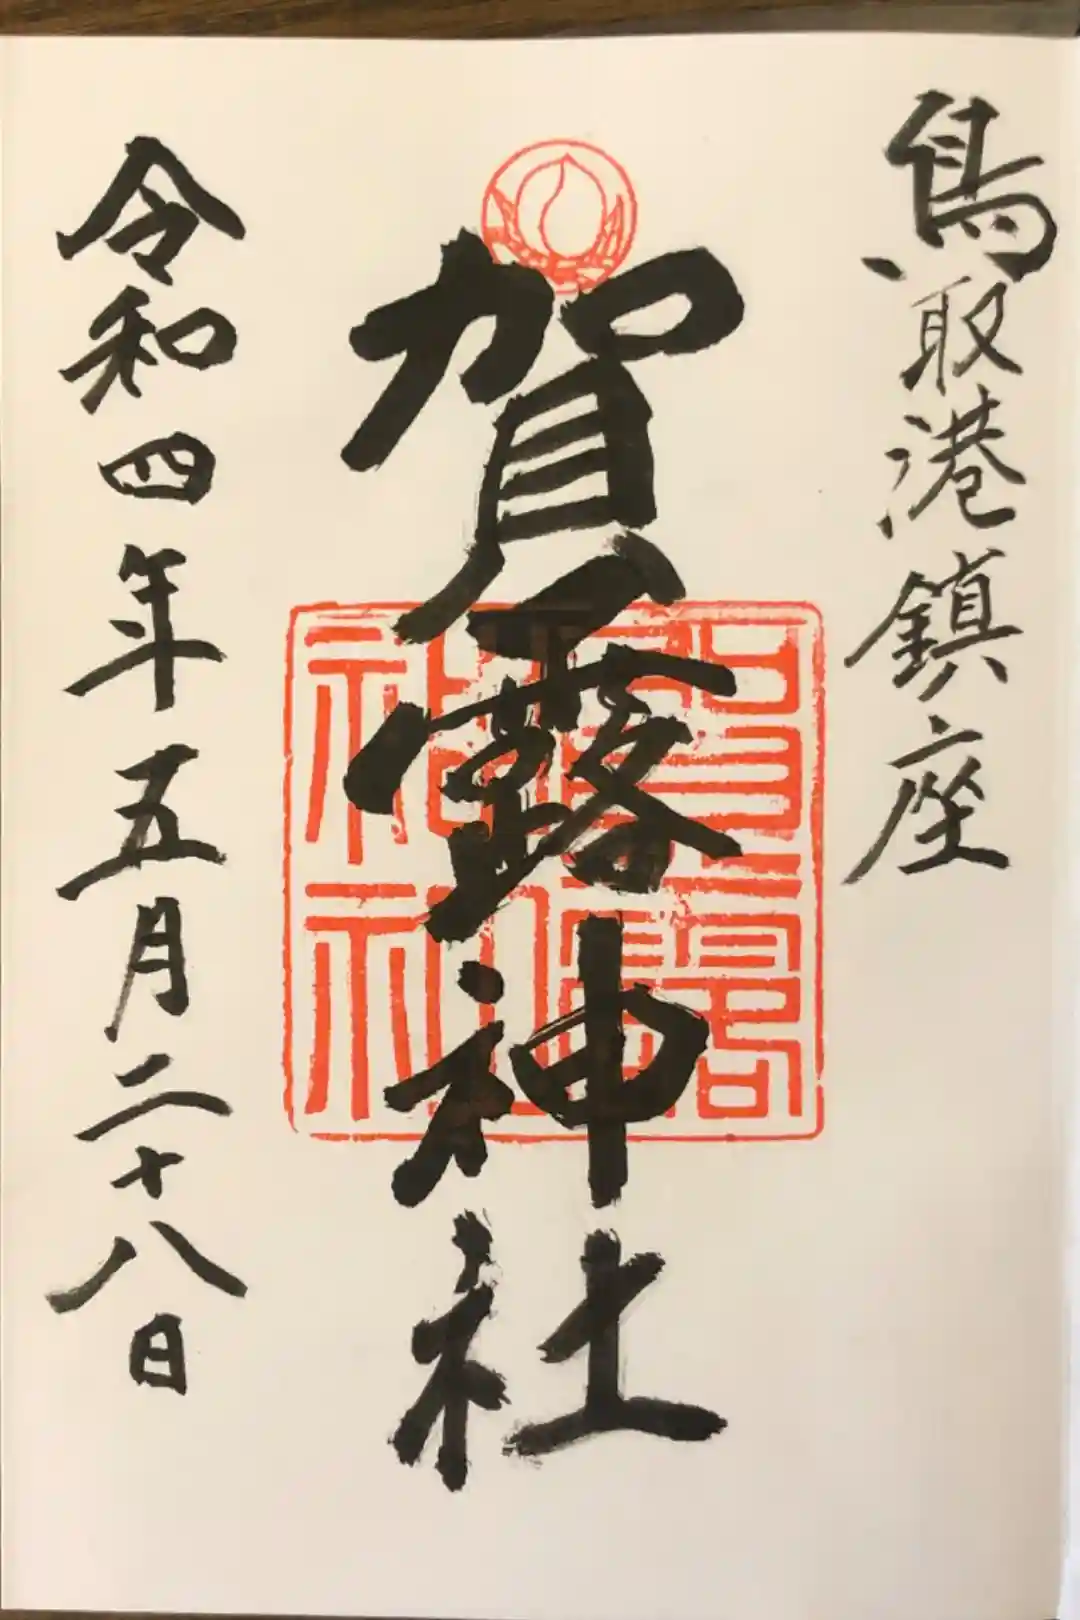 鳥取港鎮座
賀露神社
令和四年五月二十八日